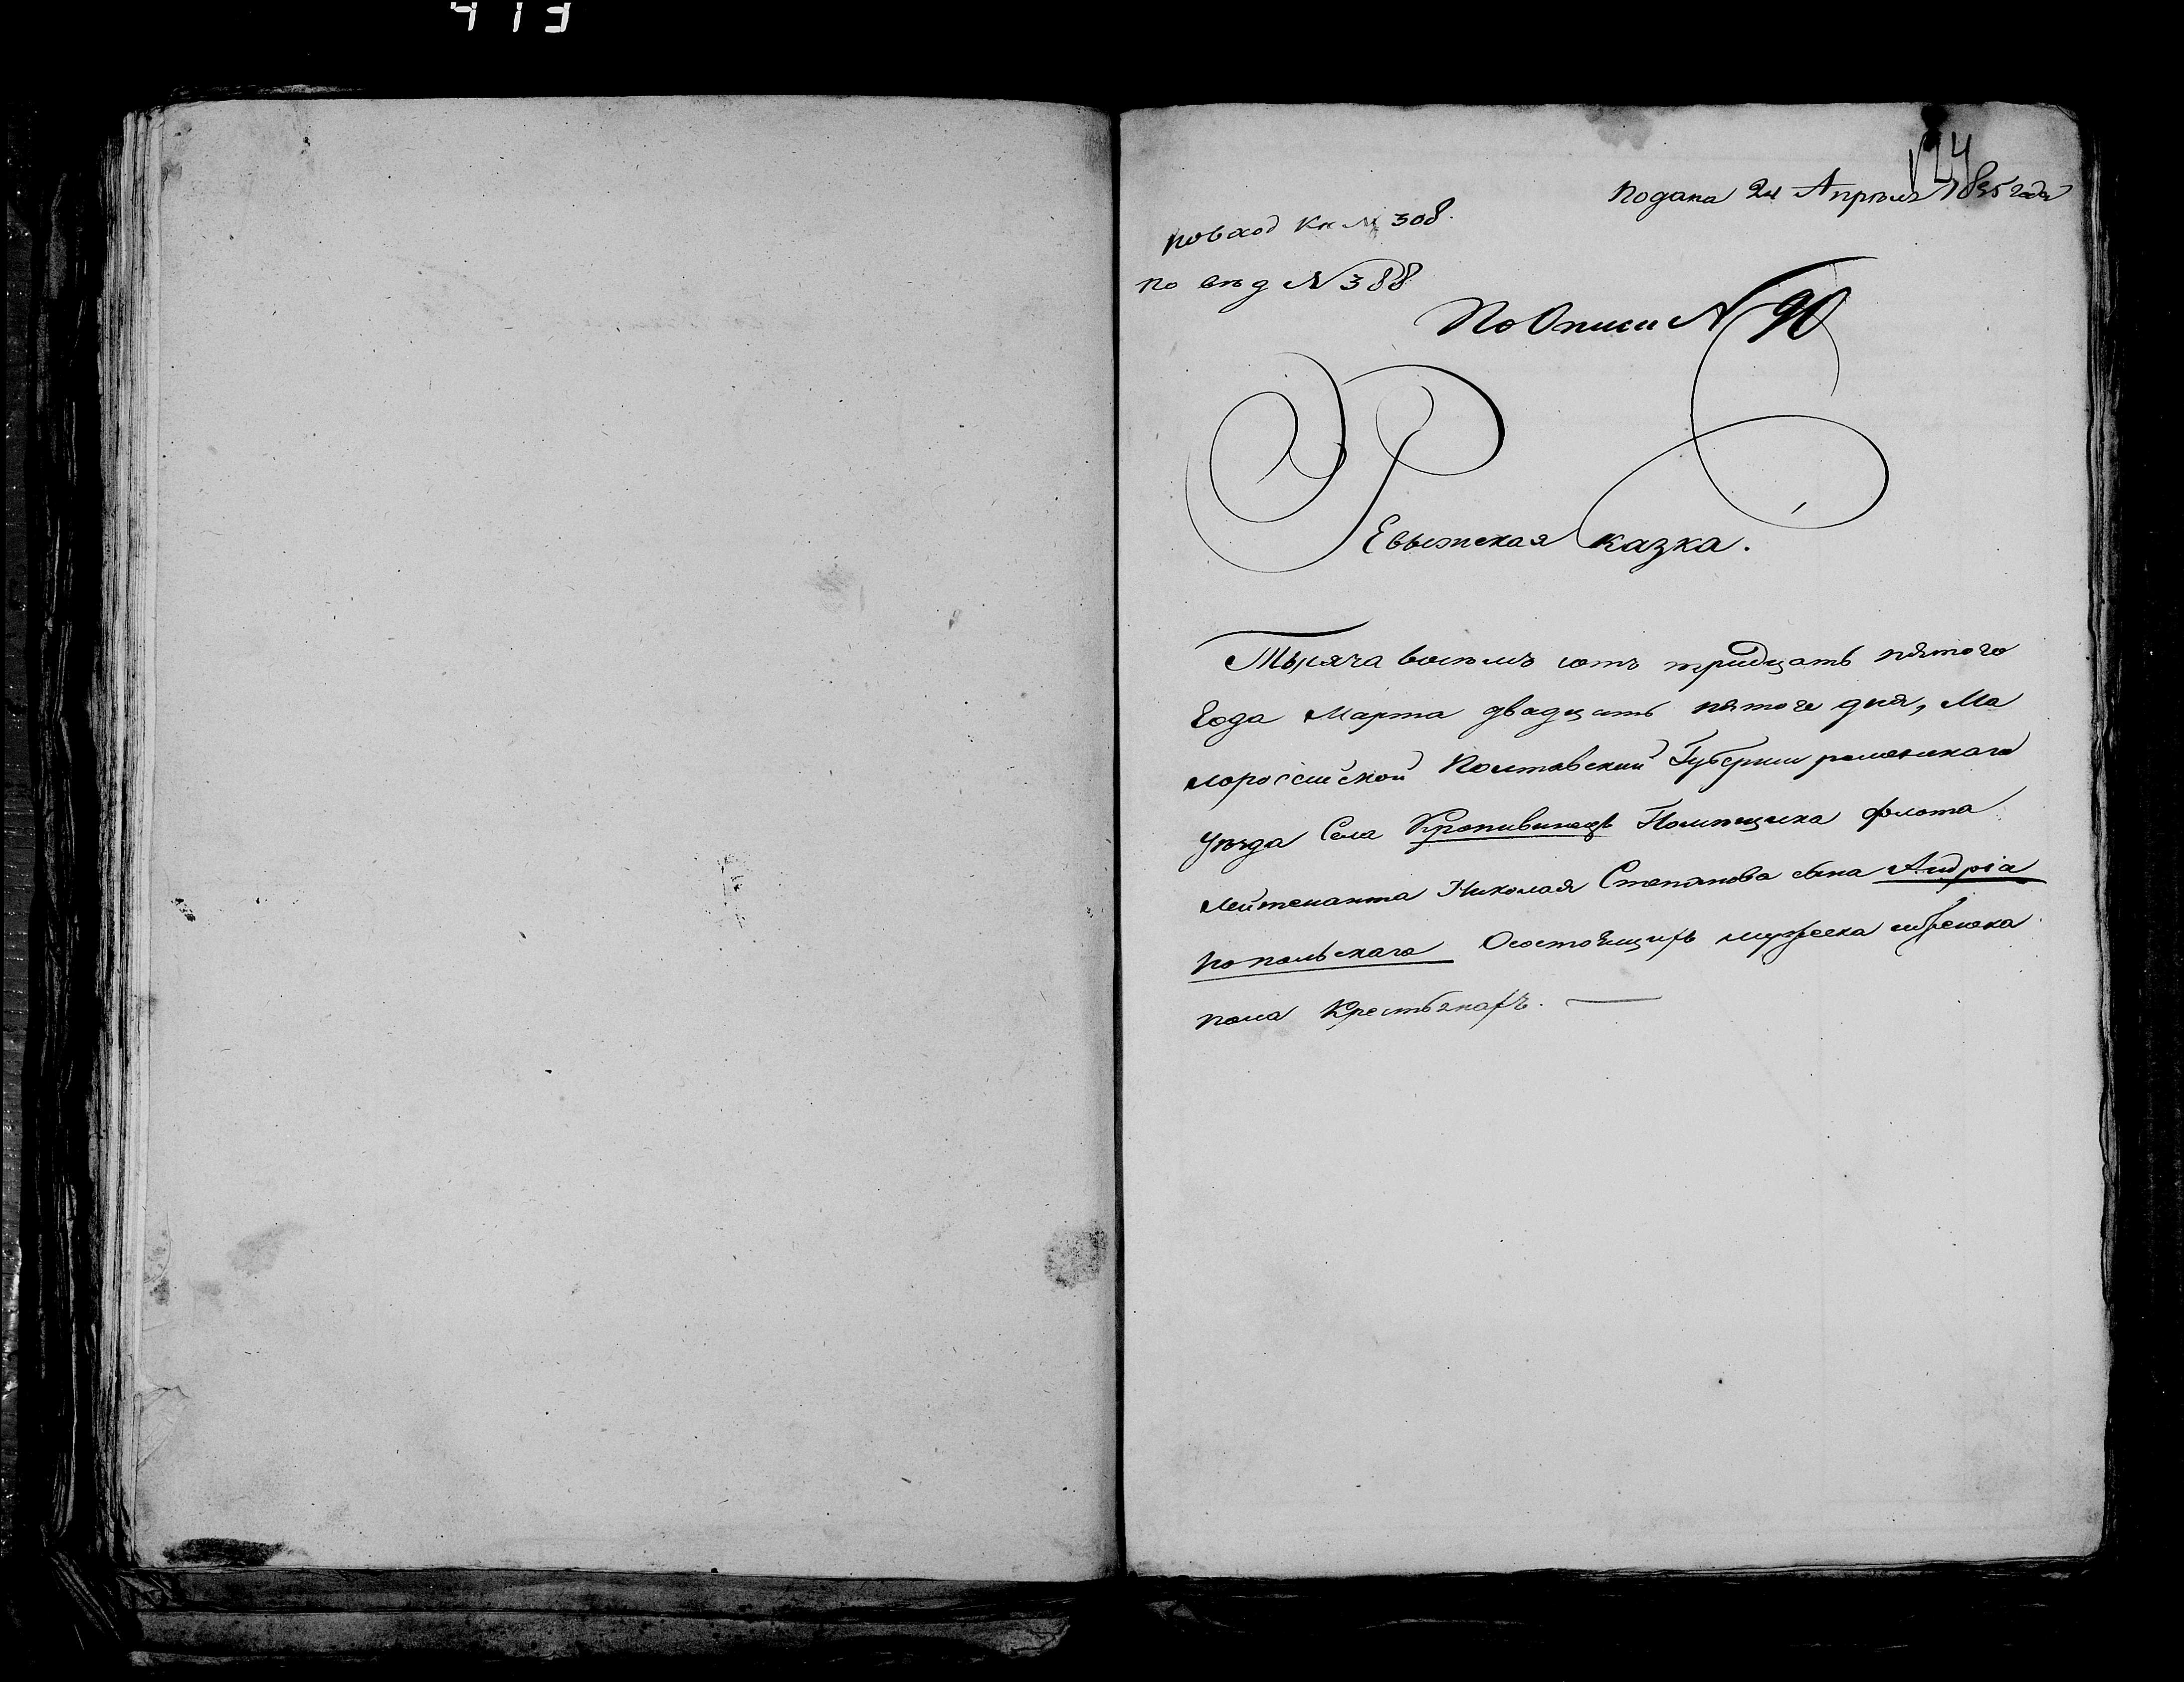 413
124
подана 24 Апреля 1835 года
по вход Кн № 308.
по вѣд № 388
По Описи № 90
Ревыжская казка.
Тысяча восемъ сотъ тридцать пятого
Года Марта двадцать пятого дня, Ма
лороссийской Полтавский Губернии роменскаго
уѣзда Села Кропивинецъ Помѣщика флота
Лейтенанта Николая Степанова сына Андріа
нопольскаго Осостоящихъ мужеска иженска
пола Крестьянахъ.